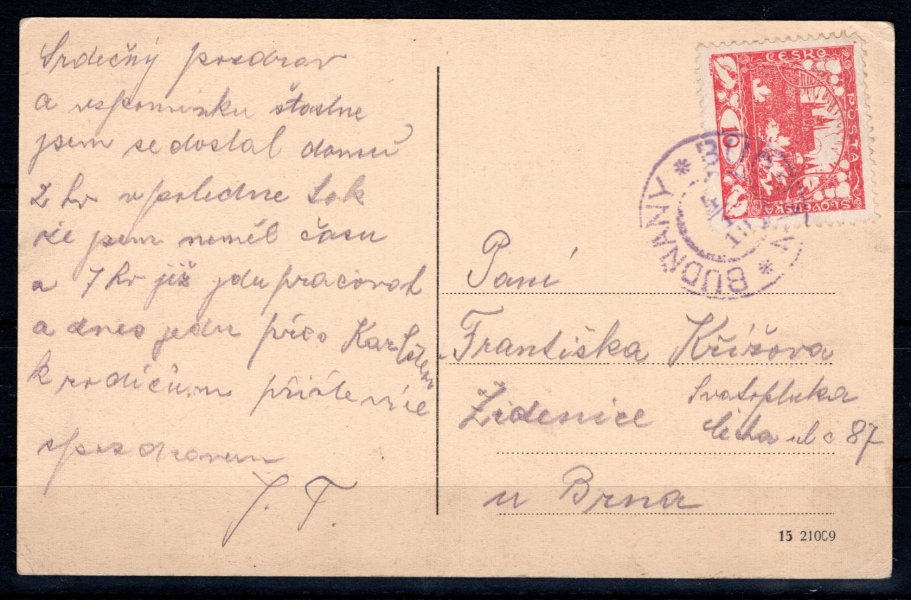 Srdečný pozdrav
a vzpomínku štastne
jsem se dostal domů
2 hv v poledne tak
že jsem neměl času
a 7 hv již jdu pracovat
a dnes jedu přes Karlštein
k rodičům příště více
spozdravem
J. T.
ČESKO
POŠTA
SLOVENSKÁ
10
* BUDŇANY *
Paní
Františka Křížova
Židenice Svatopluka
čecha ul c 87
u Brna
15 21009